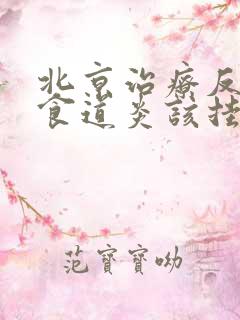 北京治療反
食道炎該挂
范寶寶呦